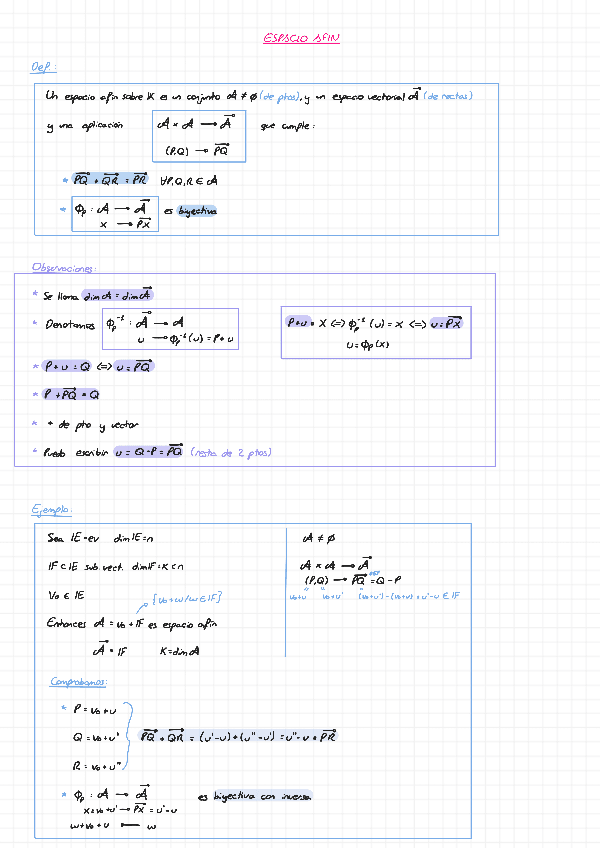 ESPACIO AFIN
Def.:
Un espacio afín sobre IK es un conjunto A ≠ ∅ (de ptos), y un espacio vectorial A⃗ (de rectas)
y una aplicación A × A → A⃗ que cumple:
(P,Q) → PQ⃗
* PQ⃗ + QR⃗ = PR⃗ ∀P,Q,R ∈ A
* ϕp : A → A⃗ es biyectiva
x → PX⃗
Observaciones:
* Se llama dim A = dim A⃗
* Denotamos ϕp⁻¹ : A⃗ → A
u → ϕp⁻¹(u) = P + u
P + u = X <=> ϕp⁻¹(u) = x <=> u = PX⃗
u = ϕp(x)
* P + u = Q <=> u = PQ⃗
* P + PQ⃗ = Q
* + de pto y vector
* Puedo escribir u = Q - P = PQ⃗ (resta de 2 ptos)
Ejemplo:
Sea IE - ev dim IE = n
IF ⊂ IE sub. vect. dim IF = K < n
V₀ ∈ IE
{v₀ + w / w ∈ IF}
Entonces A = v₀ + IF es espacio afín
A⃗ = IF K = dim A
A ≠ ∅
A × A → A⃗
(P,Q) → PQ⃗ = Q - P
v₀+u v₀+u' (v₀+u') - (v₀+u) = u' - u ∈ IF
Comprobamos:
* P = v₀ + u
Q = v₀ + u'
PQ⃗ + QR⃗ = (u' - u) + (u'' - u') = u'' - u = PR⃗
R = v₀ + u''
* ϕp : A → A⃗ es biyectiva con inversa
x = v₀ + u' → PX⃗ = u' - u
w + v₀ + u ← w